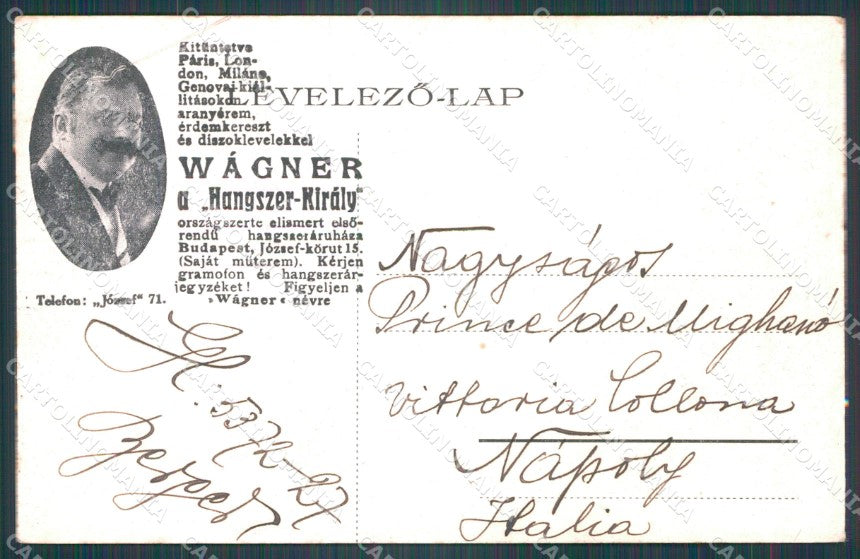 Kitüntetve
Páris, Lon-
don, Milánó,
Genovai kiál-
litásokon
aranyérem,
érdemkereszt
és diszoklevelekkel
WÁGNER
a „Hangszer-Király"
országszerte elismert első-
rendű hangszeráruháza
Budapest, József-körut 15.
(Saját műterem). Kérjen
gramofon és hangszerár-
jegyzéket! Figyeljen a
»Wágner« névre
Telefon: „József" 71.
LEVELEZŐ-LAP
Nagyságos
Prince de Mighanó
Vittoria Collona
Nápoly
Italia
5372-27
CARTOLINOMANIA